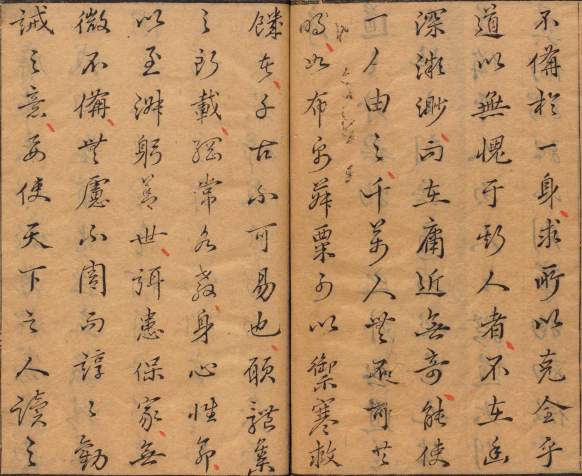 不備於一身求所以克全乎
道以無愧于斯人者不在幽
深渺而在庸近無奇能使
一人由之千萬人可共
布帛菽粟可以禦寒救
饑古不可易也集
之所載綱常名教身心性命
以至淑躬善世弭患保家無
微不備其慮不周而諄〻勸
誡之意要使天下之人讀之